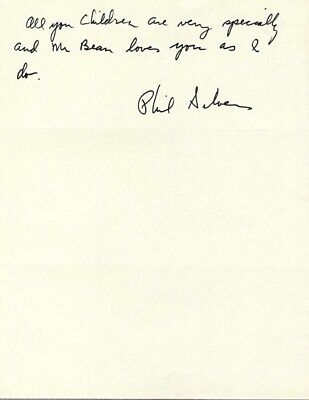 All you Children are very specially
and Mr Bean loves you as I
do.
Phil Silvers